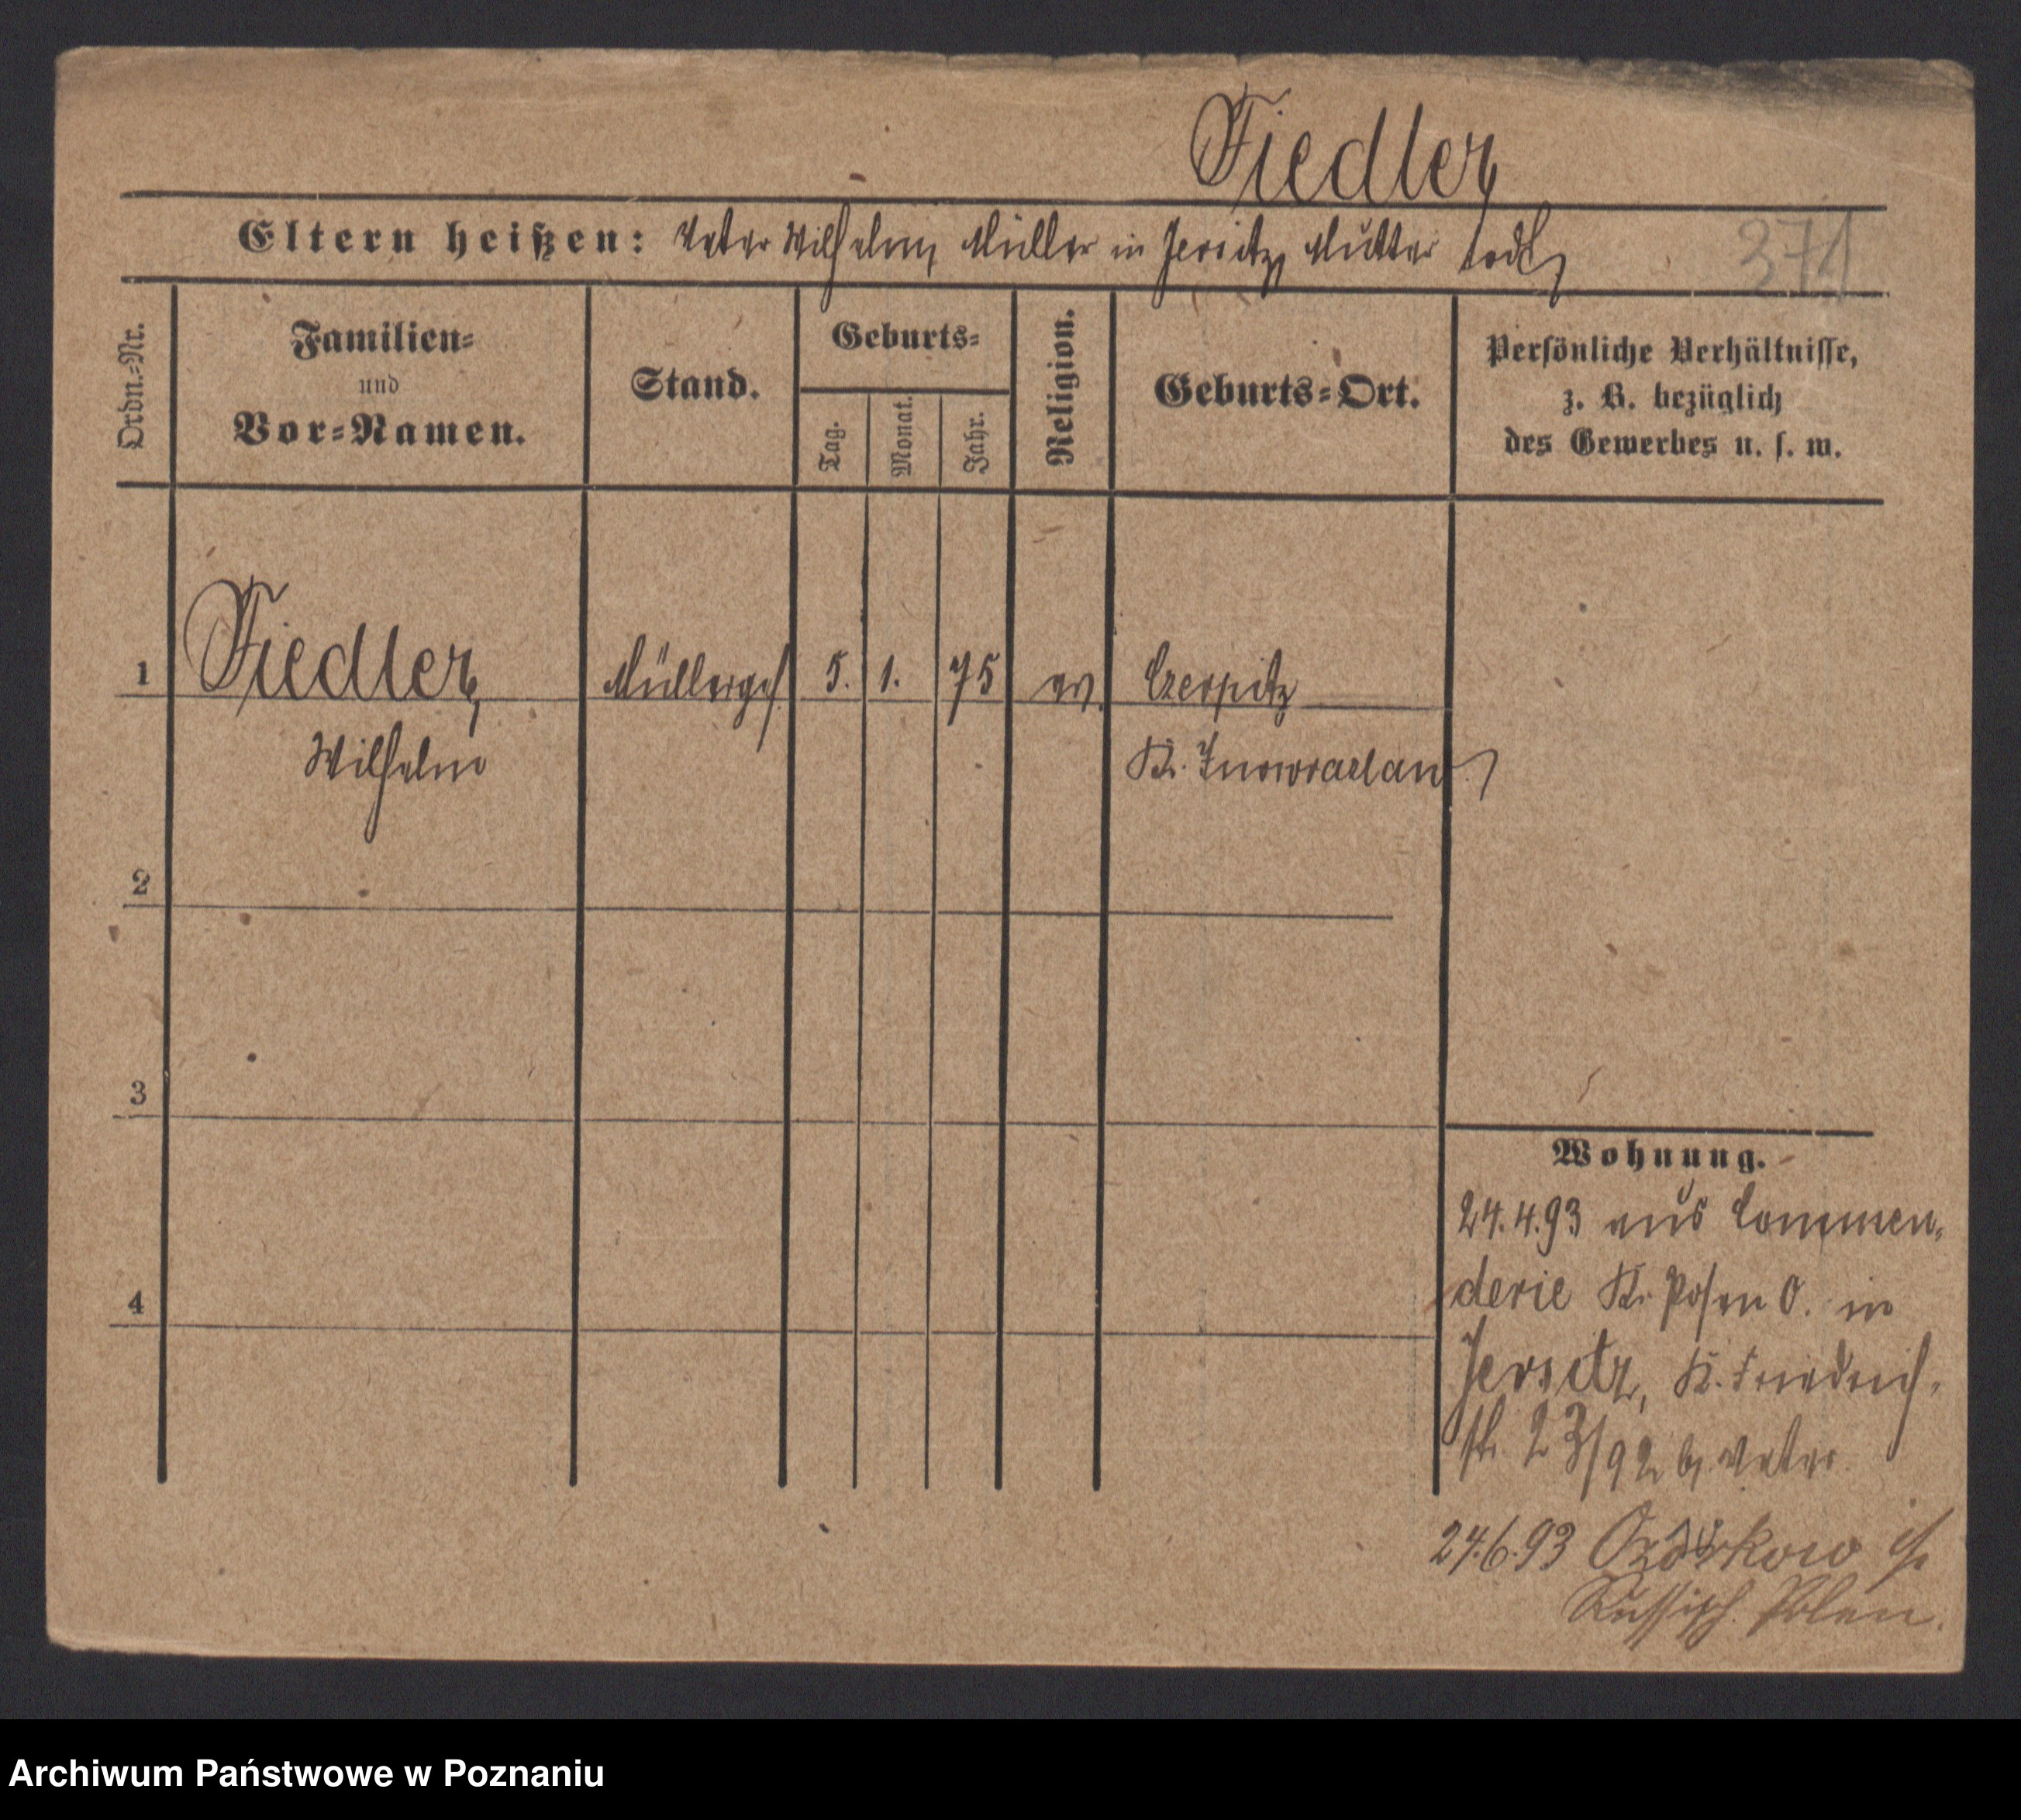 Fiedler,
Eltern heißen: Vater Wilhelm, Müller in Jersitz, Mutter todt,
371
Ordn.-Nr.
Familien-
und
Vor-Namen.
Stand.
Geburts-
Tag.
Monat.
Jahr.
Religion.
Geburts-Ort.
Persönliche Verhältnisse,
z. B. bezüglich
des Gewerbes u. s. w.
1 Fiedler, Müllerges. 5. 1. 75 ev. Czerpitz
Wilhelm Kr. Inowrazlaw
2
3
4
Wohnung.
24.4.93 aus Commen-
derie Kr. Posen O. in
Jersitz, Kl. Friedrich-
str. 23/92 b. Vater.
24.6.93 Ozorkow i/
Russisch. Polen.
Archiwum Państwowe w Poznaniu